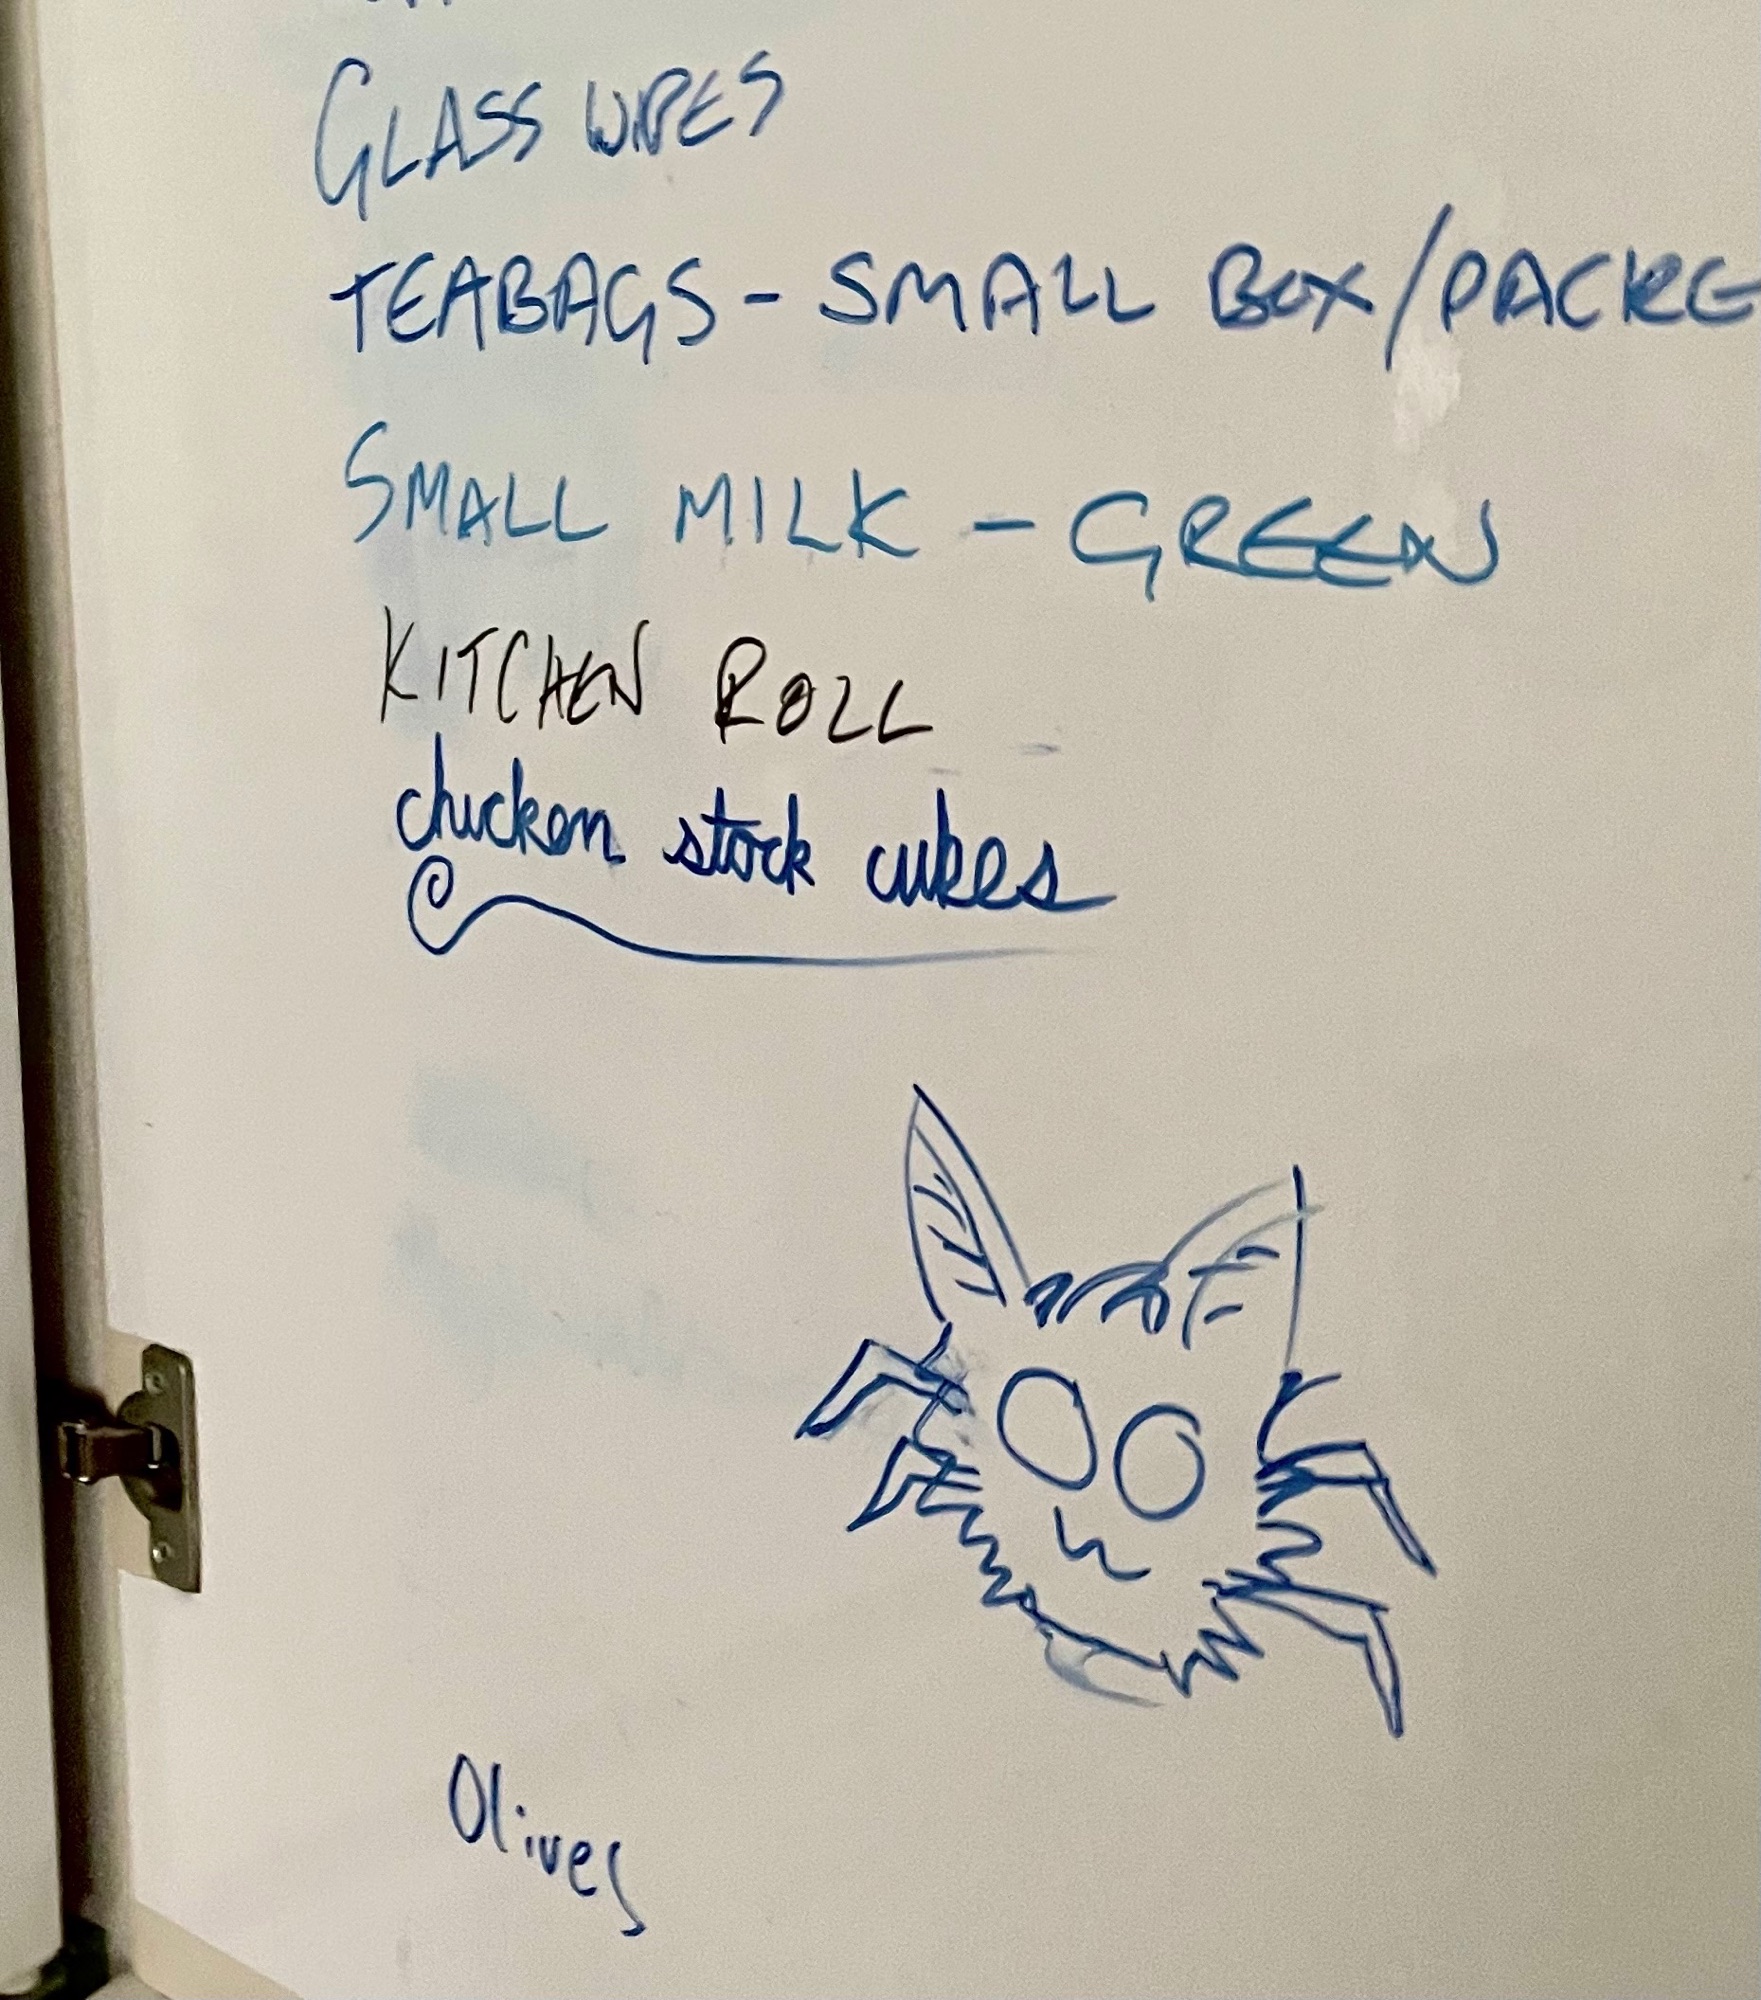 GLASS WIPES
TEABAGS - SMALL BOX/PACKE
SMALL MILK - GREEN
KITCHEN ROLL
chicken stock cubes
Olives